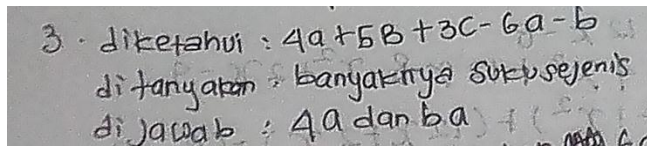 3. diketahui : 4a + 5B + 3C - 6a - b
ditanyakan : banyaknya suku sejenis
dijawab : 4a dan ba